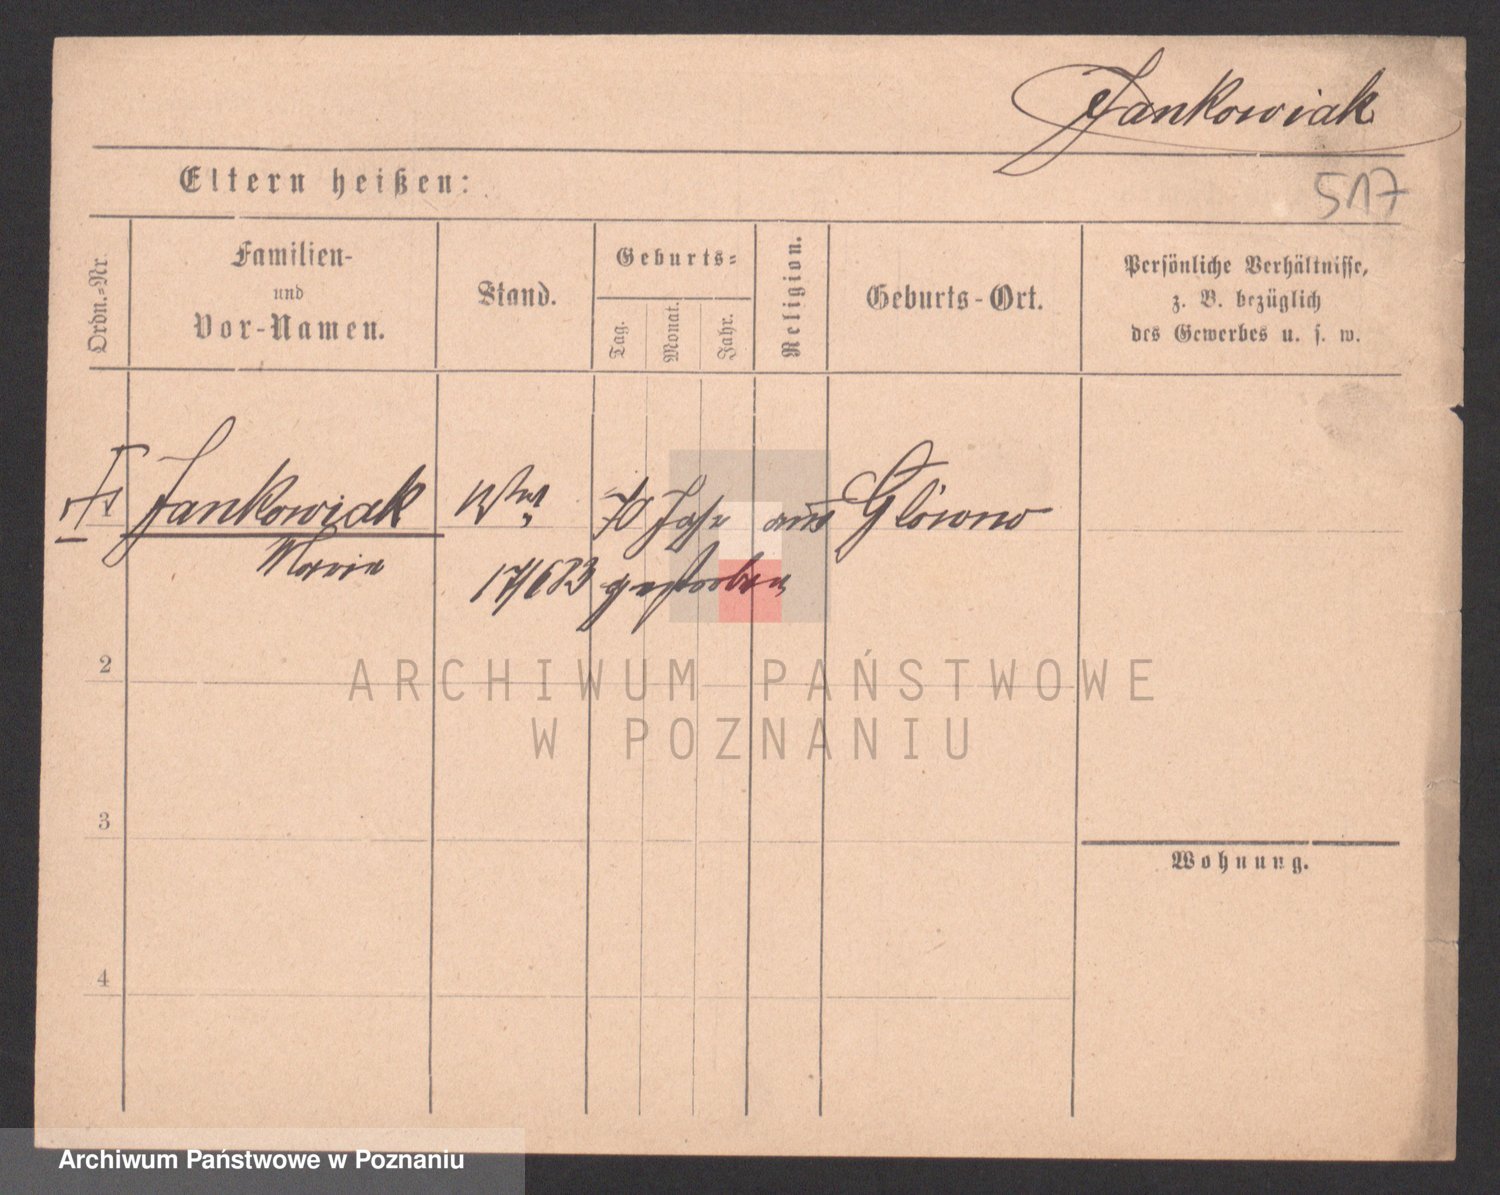 Jankowiak
517
Eltern heißen:
Ordn.-Nr.
Familien-
und
Vor-Namen.
Stand.
Geburts-
Tag.
Monat.
Jahr.
Religion.
Geburts-Ort.
Persönliche Verhältnisse,
z. B. bezüglich
des Gewerbes u. s. w.
Jankowiak Wwe 70 Jahr aus Glówno
Maria
17/6 83 gestorben
2
ARCHIWUM PAŃSTWOWE
W POZNANIU
3
Wohnung.
4
Archiwum Państwowe w Poznaniu